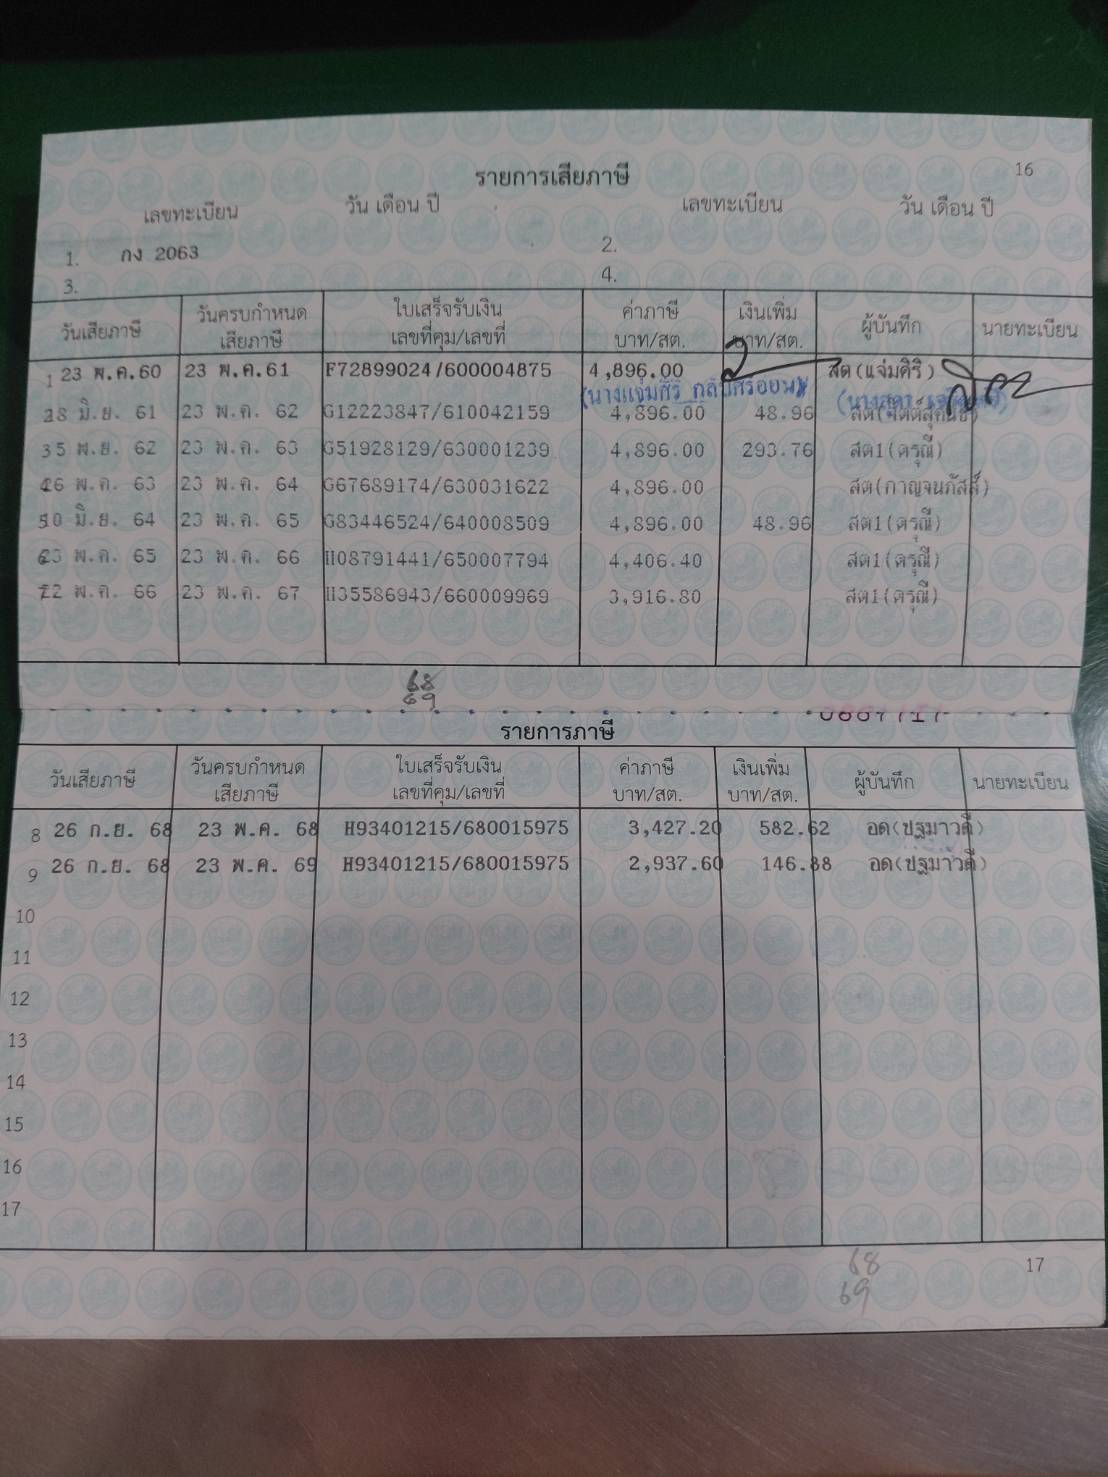 16
รายการเสียภาษี
เลขทะเบียน วัน เดือน ปี เลขทะเบียน วัน เดือน ปี
1. กง 2063 2.
3. 4.
วันเสียภาษี วันครบกำหนดเสียภาษี ใบเสร็จรับเงิน เลขที่คุม/เลขที่ ค่าภาษี บาท/สต. เงินเพิ่ม บาท/สต. ผู้บันทึก นายทะเบียน
1 23 พ.ค.60 23 พ.ค.61 F72899024/600004875 4,896.00 สต(แจ่มศิริ)
28 มิ.ย. 61 23 พ.ค. 62 G12223847/610042159 4,896.00 48.96
35 พ.ย. 62 23 พ.ค. 63 G51928129/630001239 4,896.00 293.76 สต1(ดรุณี)
26 พ.ค. 63 23 พ.ค. 64 G67689174/630031622 4,896.00 สต(กาญจนภัสส์)
10 มิ.ย. 64 23 พ.ค. 65 G83446524/640008509 4,896.00 48.96 สต1(ดรุณี)
23 พ.ค. 65 23 พ.ค. 66 H08791441/650007794 4,406.40 สต1(ดรุณี)
22 พ.ค. 66 23 พ.ค. 67 H35586943/660009969 3,916.80 สต1(ดรุณี)
68
69
รายการภาษี
วันเสียภาษี วันครบกำหนดเสียภาษี ใบเสร็จรับเงิน เลขที่คุม/เลขที่ ค่าภาษี บาท/สต. เงินเพิ่ม บาท/สต. ผู้บันทึก นายทะเบียน
8 26 ก.ย. 68 23 พ.ค. 68 H93401215/680015975 3,427.20 582.62 อด(ปฐมาวดี)
9 26 ก.ย. 68 23 พ.ค. 69 H93401215/680015975 2,937.60 146.88 อด(ปฐมาวดี)
10
11
12
13
14
15
16
17
68
69
17